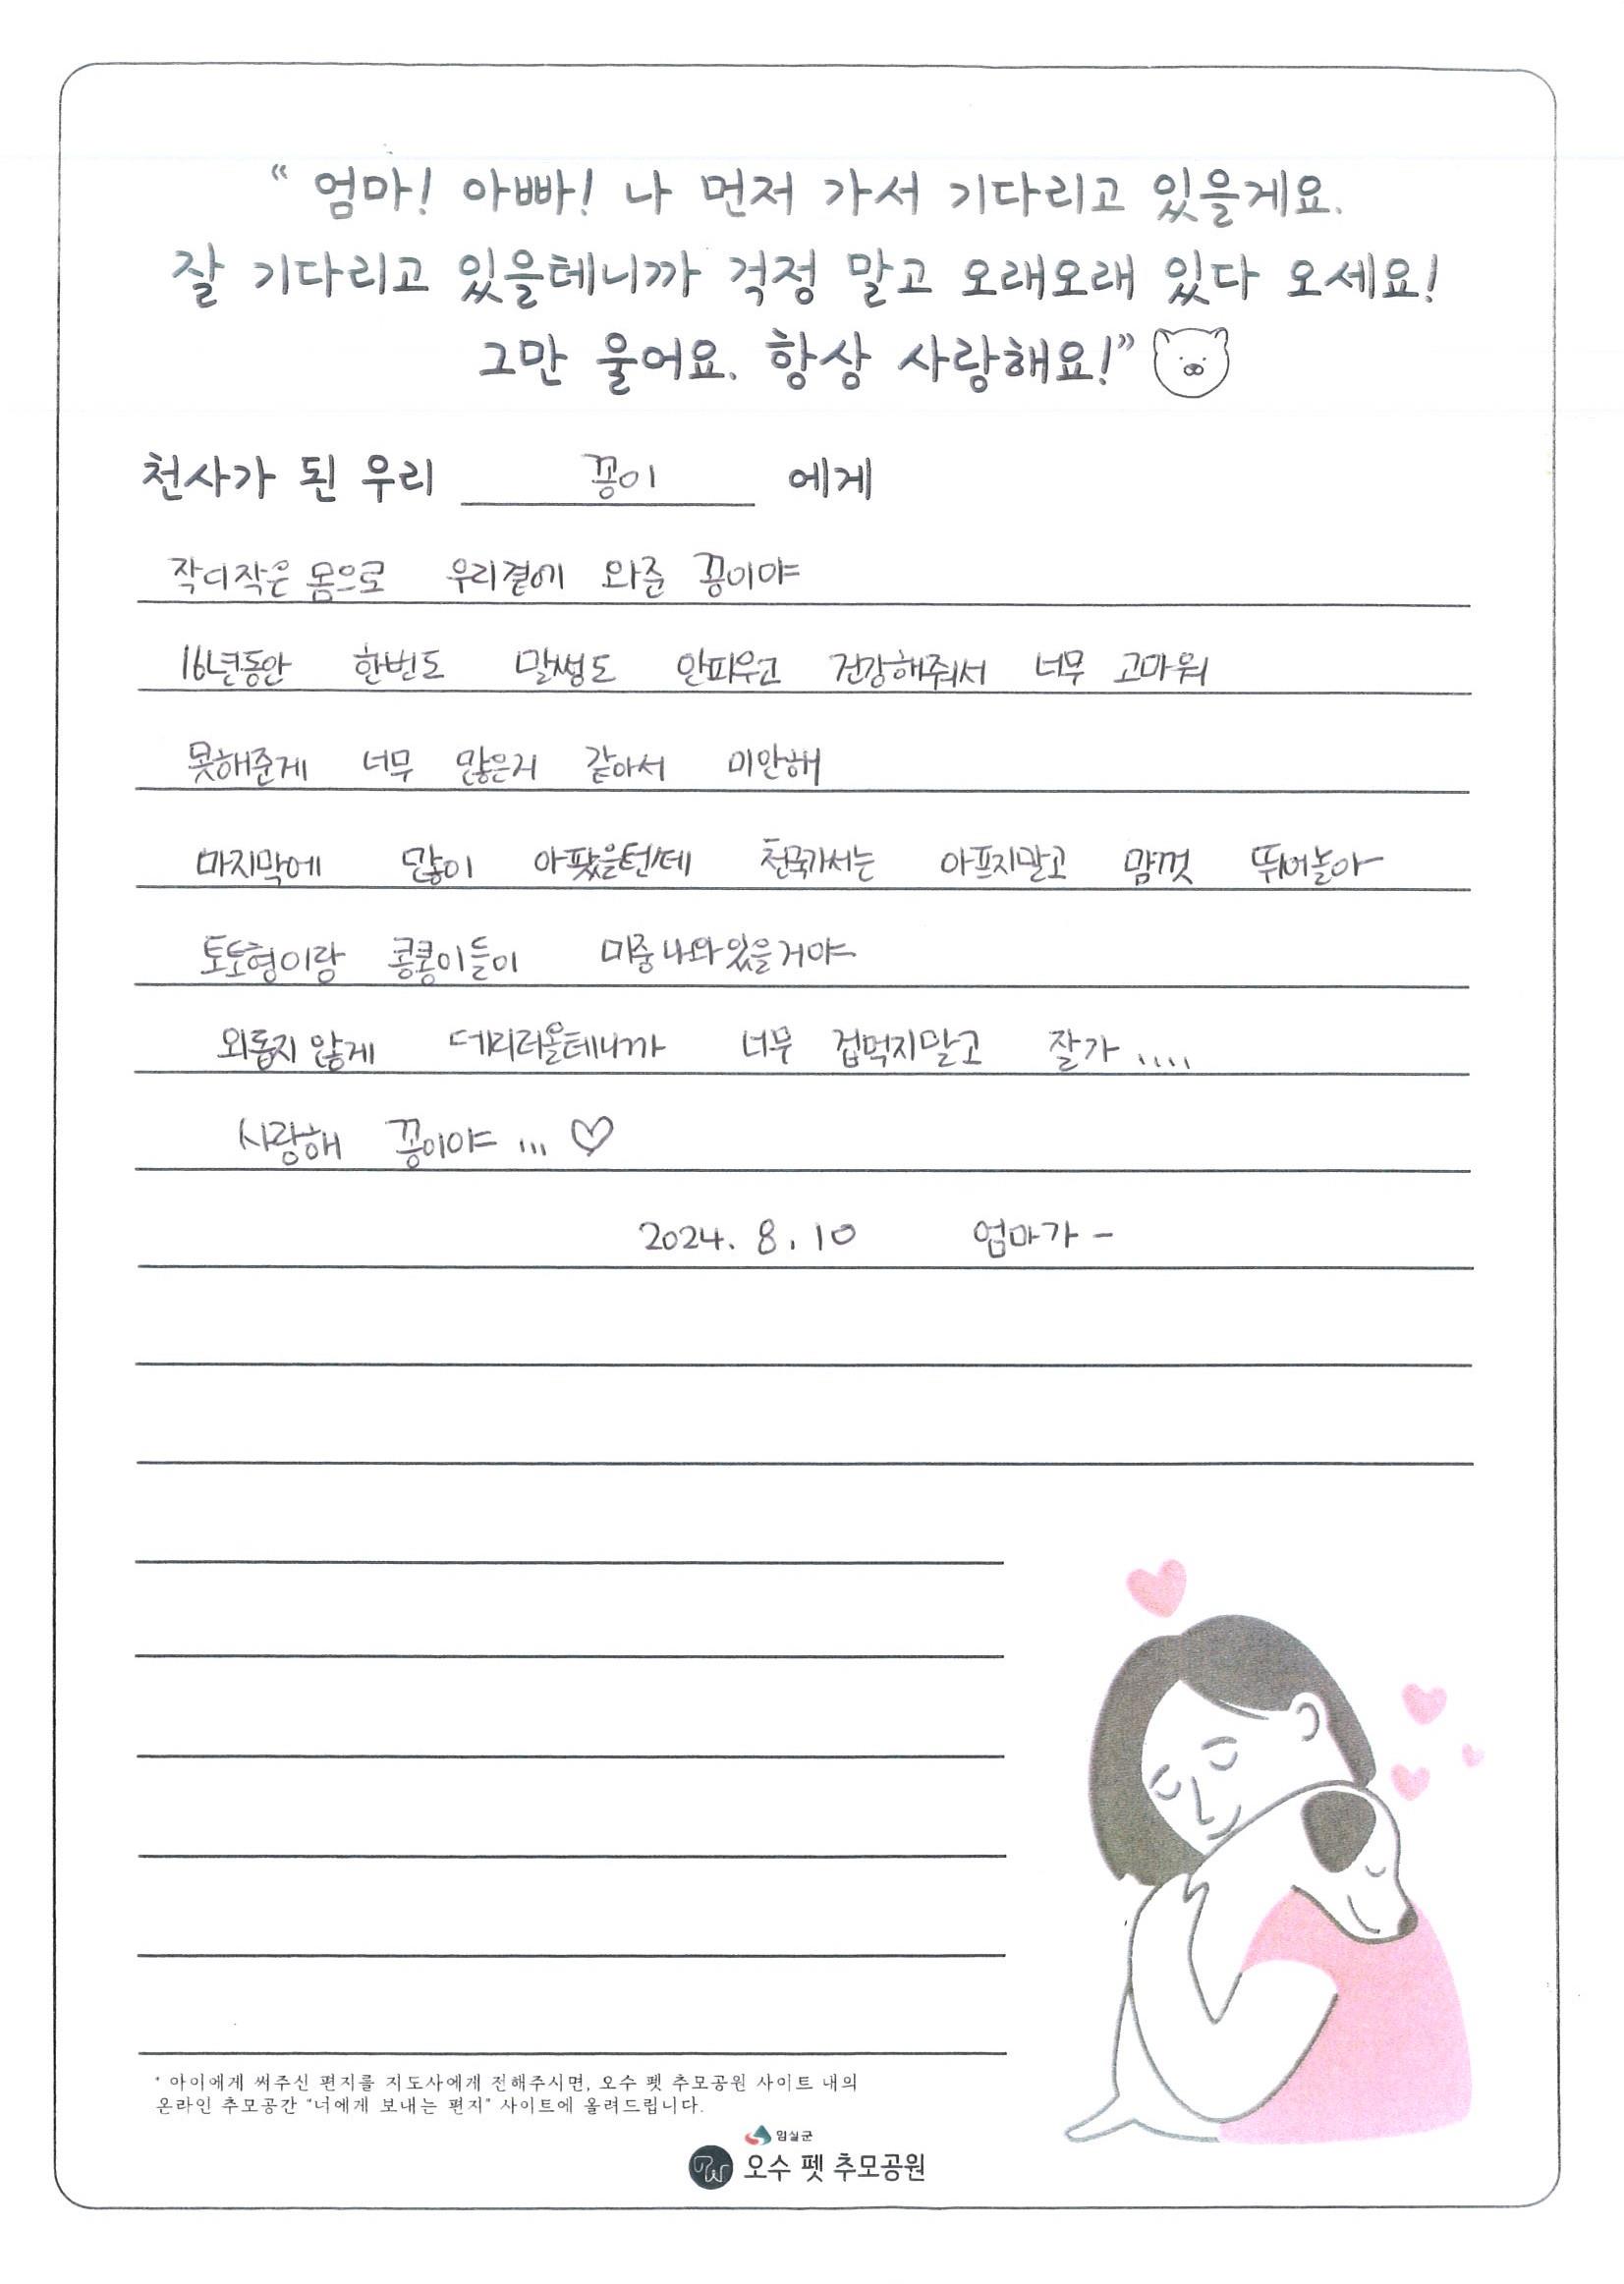 “ 엄마! 아빠! 나 먼저 가서 기다리고 있을게요.
잘 기다리고 있을테니까 걱정 말고 오래오래 있다 오세요!
그만 울어요. 항상 사랑해요!”
천사가 된 우리 꽁이 에게
작디작은 몸으로 우리곁에 와준 꽁이야
16년동안 한번도 말썽도 안피우고 건강해줘서 너무 고마워
못해준게 너무 많은거 같아서 미안해
마지막에 많이 아팠을텐데 천국가서는 아프지말고 맘껏 뛰어놀아
토토형이랑 콩콩이들이 마중나와있을거야
외롭지 않게 데리러올테니까 너무 겁먹지말고 잘가 ....
사랑해 꽁이야 ... ♡
2024. 8. 10 엄마가 -
* 아이에게 써주신 편지를 지도사에게 전해주시면, 오수 펫 추모공원 사이트 내의
온라인 추모공간 "너에게 보내는 편지" 사이트에 올려드립니다.
임실군
오수 펫 추모공원